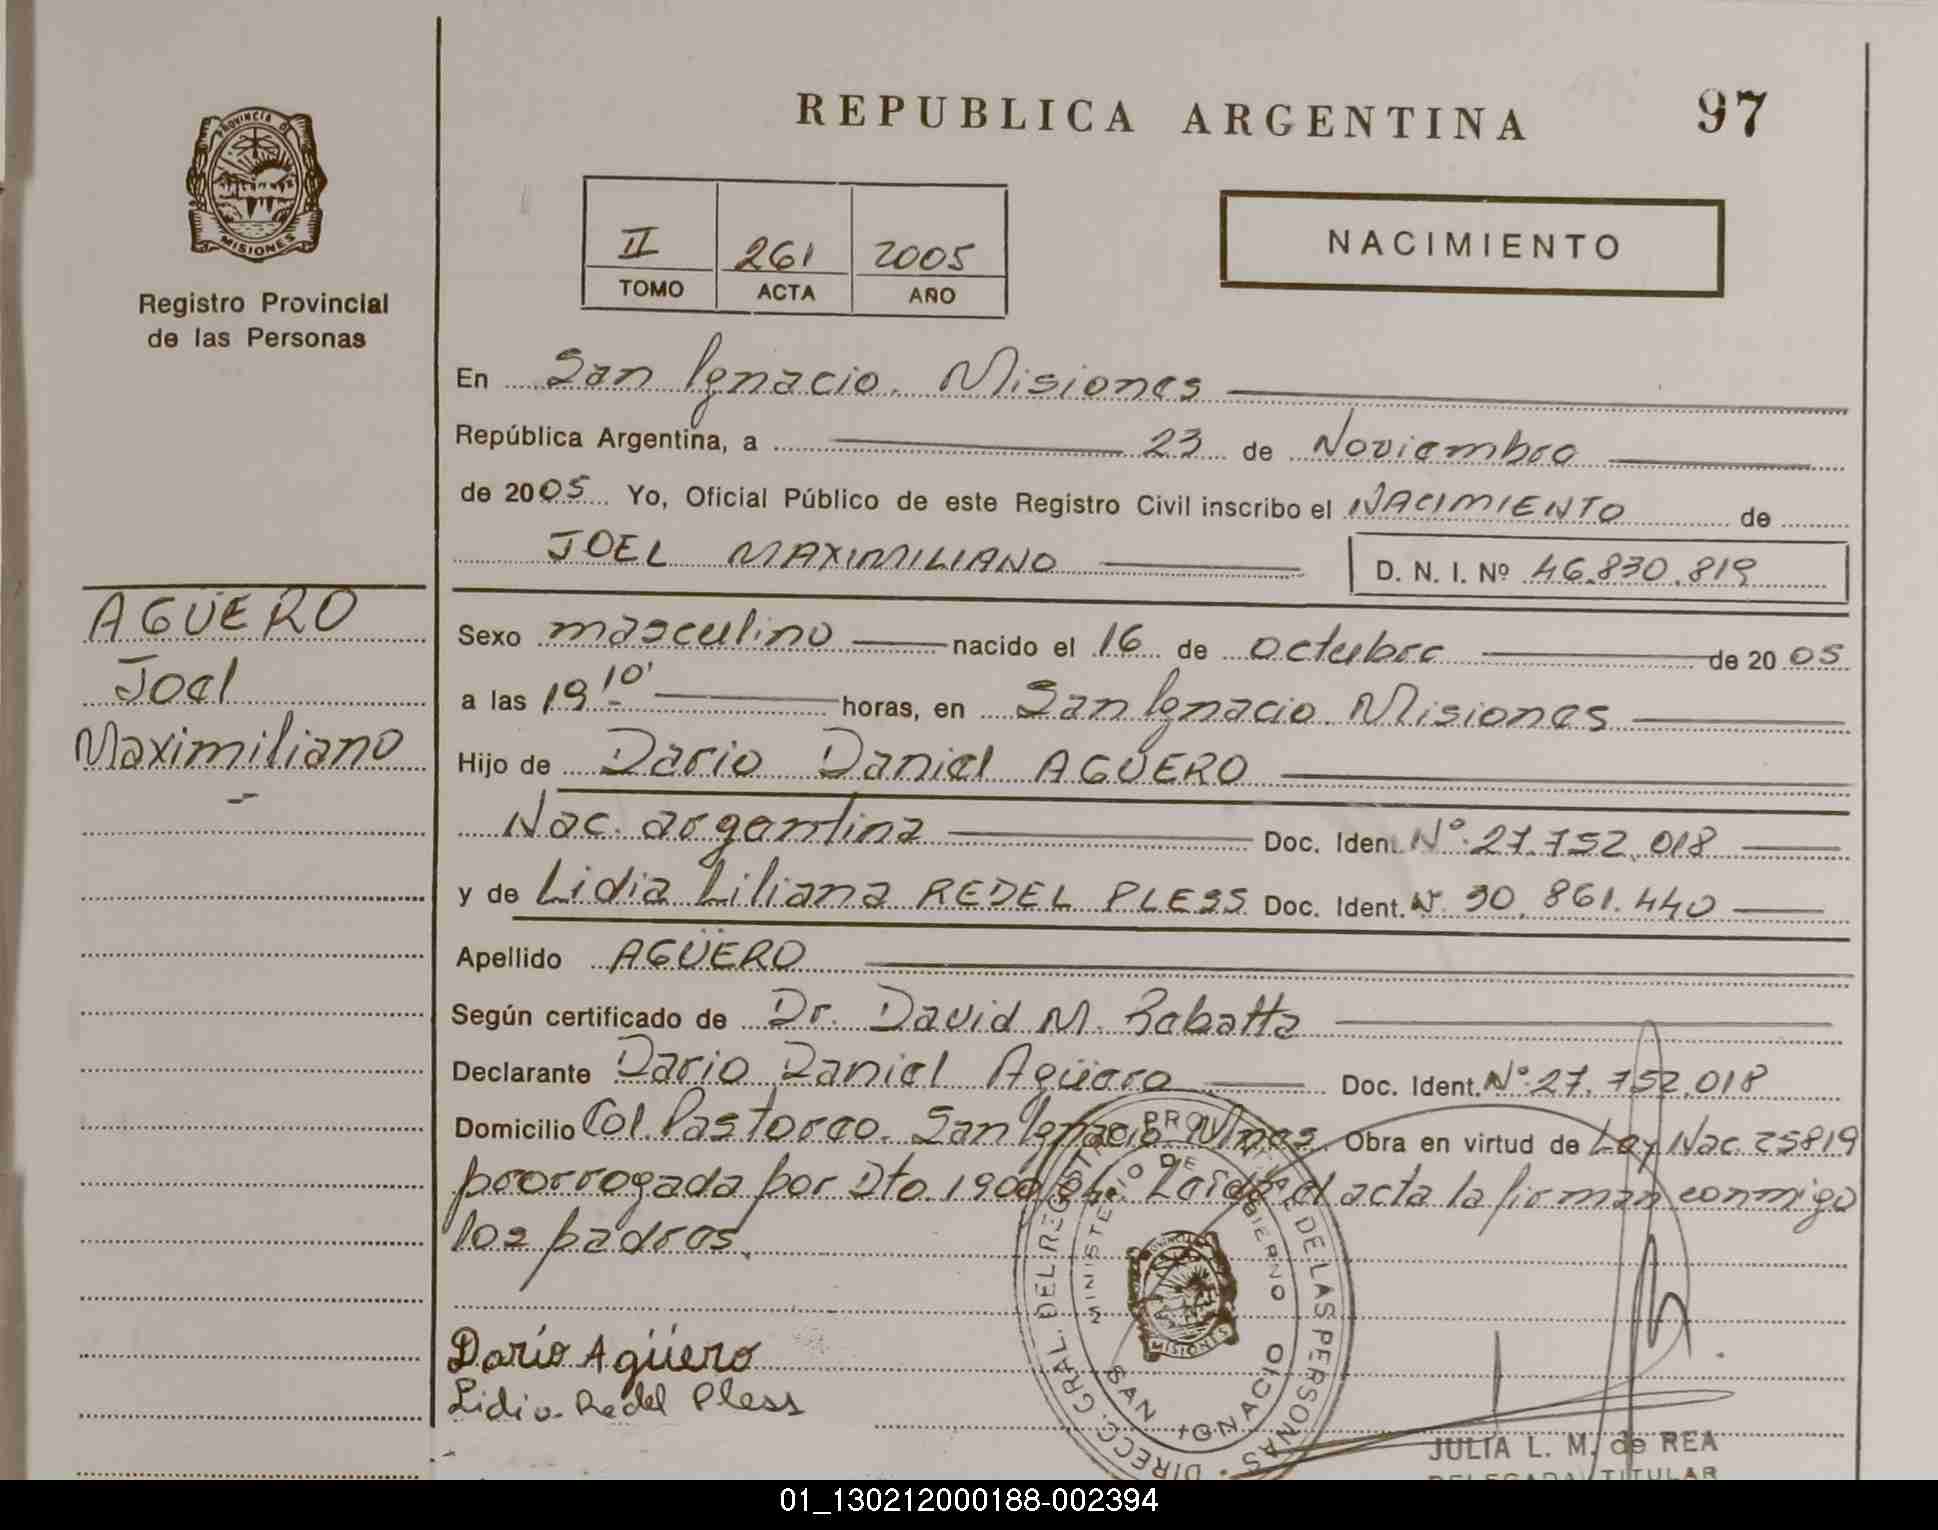 REPUBLICA ARGENTINA
97
PROVINCIA D
MISIONES
Registro Provincial
de las Personas
II 261 2005
TOMO ACTA AÑO
NACIMIENTO
En San Ignacio. Misiones
República Argentina, a 23 de Noviembre
de 2005 Yo, Oficial Público de este Registro Civil inscribo el NACIMIENTO de
JOEL MAXIMILIANO D. N. I. Nº 46.830.819
AGÜERO
Joel
Maximiliano
Sexo masculino nacido el 16 de octubre de 2005
a las 19 10' horas, en San Ignacio. Misiones
Hijo de Dario Daniel AGÜERO
Nac. argentina Doc. Ident. Nº 27.752.018
y de Lidia Liliana REDEL PLESS Doc. Ident. Nº 30.861.440
Apellido AGÜERO
Según certificado de Dr. David M. Rabatta
Declarante Dario Daniel Agüero Doc. Ident. Nº 27.752.018
Domicilio Col. Pastoreo. San Ignacio Mnes. Obra en virtud de Ley Nac. 25819
prorrogada por Dto. 1900/04. Leída el acta la firman conmigo
los padres.
Darío Agüero
Lidia Redel Pless
DIRECC. GRAL. DEL REGISTRO PROV. DE LAS PERSONAS
MINISTERIO DE GOBIERNO
MISIONES
SAN IGNACIO
JULIA L. M. de REA
DELEGADA TITULAR
01_130212000188-002394